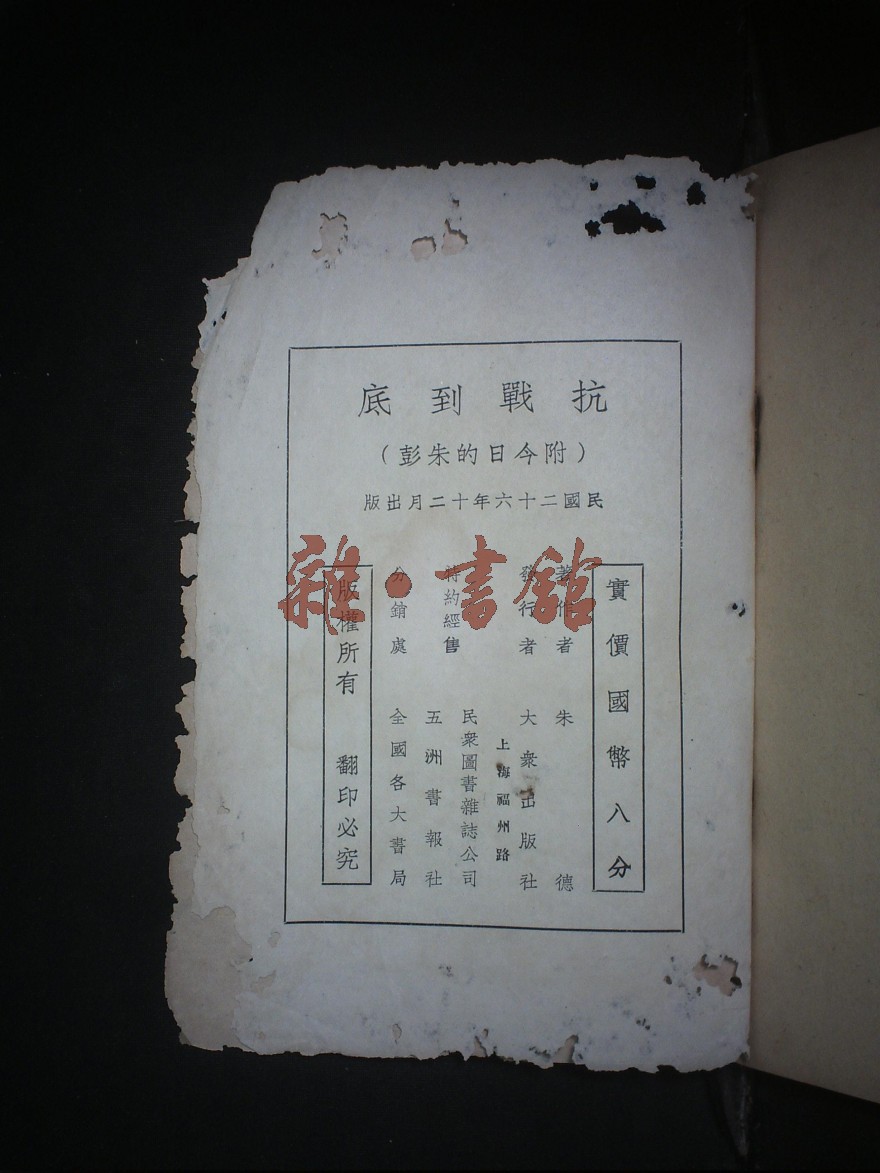 抗戰到底
（附今日的朱彭）
民國二十六年十二月出版
實價國幣八分
著作者　朱　德
發行者　大衆出版社
上海福州路
特約經售　民衆圖書雜誌公司
五洲書報社
分銷處　全國各大書局
版權所有　翻印必究
雜·書館